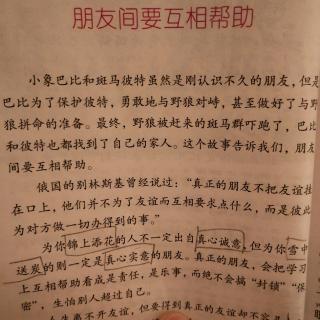 朋友间要互相帮助
小象巴比和斑马彼特虽然是刚认识不久的朋友，但是
巴比为了保护彼特，勇敢地与野狼对峙，甚至做好了与野
狼拼命的准备。最终，野狼被赶来的斑马群吓跑了，巴比
和彼特也都找到了自己的家人。这个故事告诉我们，朋友
间要互相帮助。
俄国的别林斯基曾经说过：“真正的朋友不把友谊挂
在口上，他们并不为了友谊而互相要求点什么，而是彼此
为对方做一切办得到的事。”
为你锦上添花的人不一定出自真心诚意，但为你雪中
送炭的则一定是真心实意的朋友。真正的朋友，会把学习
上互相帮助看成是责任，是乐事，而绝不会搞“封锁”“保
密”，生怕别人超过自己。
离不开友谊，但要得到真正的友谊却不容